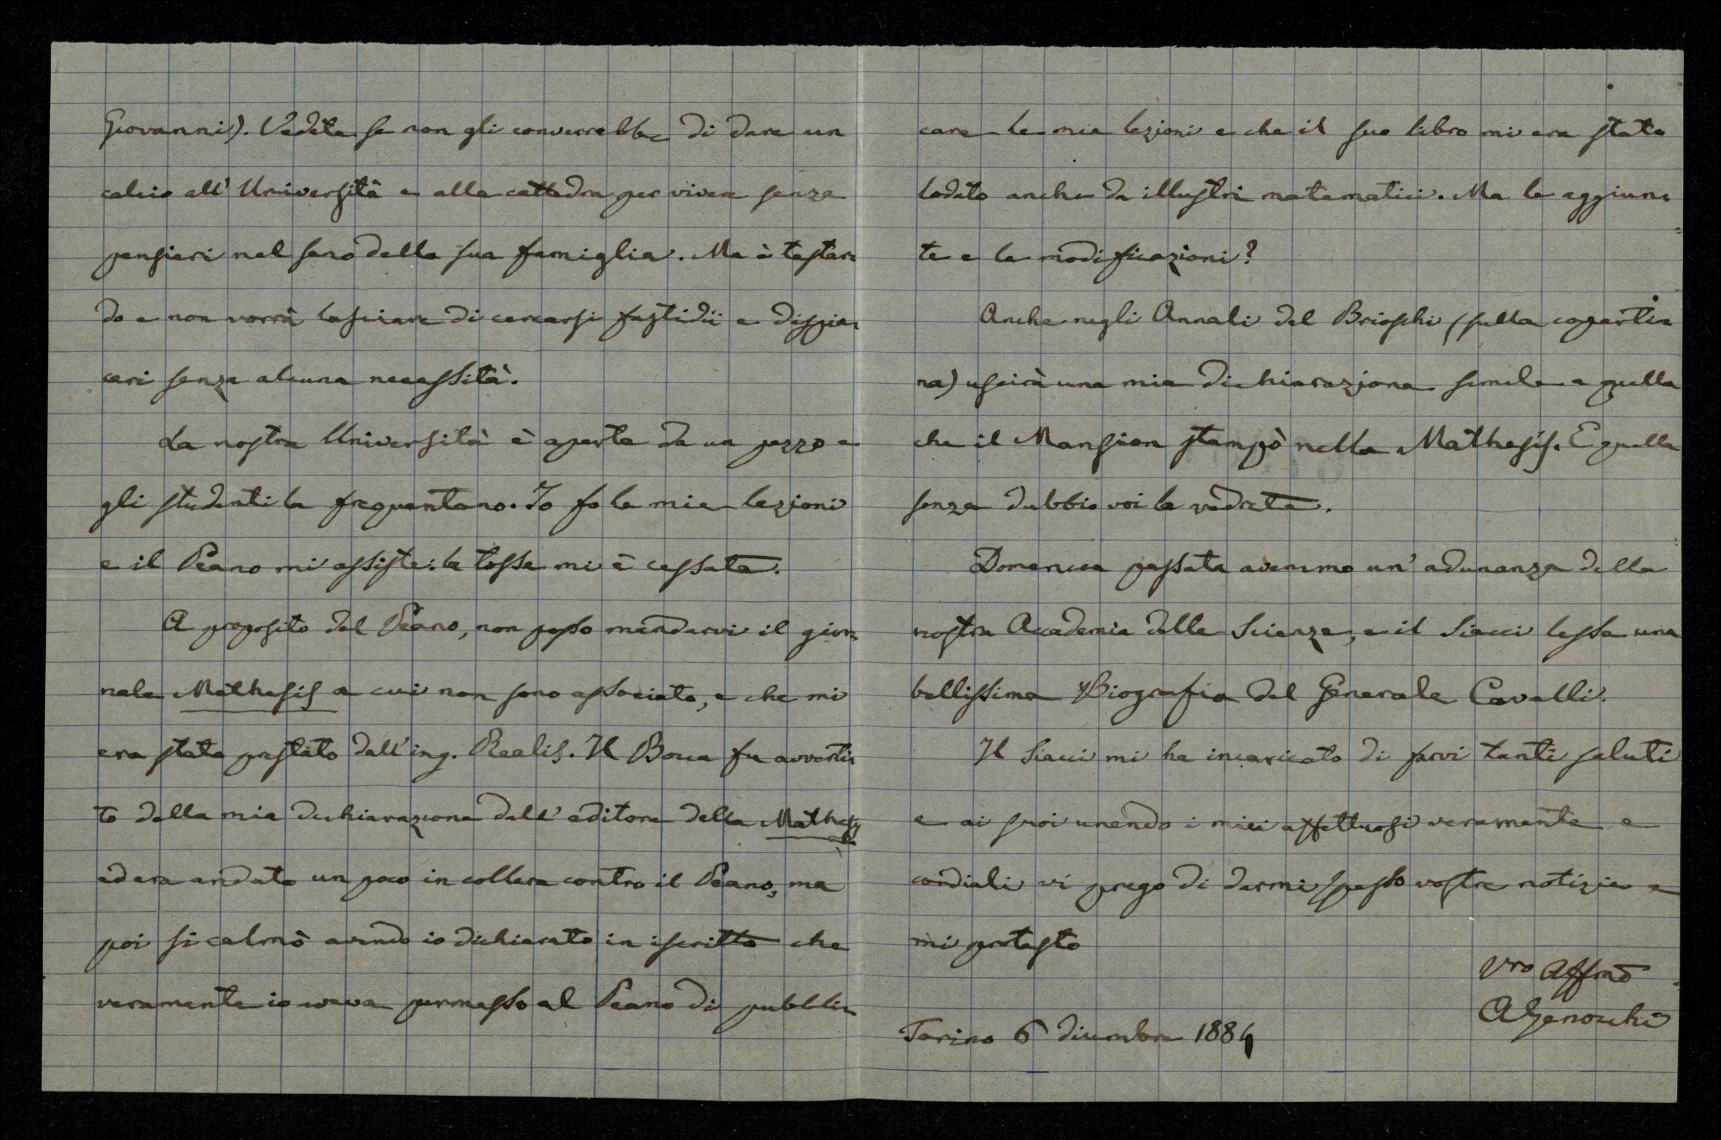 Giovanni). Vedete se non gli converrebbe di dare un
calcio all'Università e alla cattedra per vivere senza
pensieri nel seno della sua famiglia. Ma è testar-
do e non vorrà lasciare di cercarsi fastidii e dispia-
ceri senza alcuna necessità.
La nostra Università è aperta da un pezzo e
gli studenti la frequentano. Io fo le mie lezioni
e il Peano mi assiste: la tosse mi è cessata.
A proposito del Peano, non posso mandarvi il gior-
nale Mathesis a cui non sono associato, e che mi
era stato prestato dall'ing. Realis. Il Bocca fu avverti-
to della mia dichiarazione dall'editore della Mathesis
ed era andato un poco in collera contro il Peano, ma
poi si calmò avendo io dichiarato in iscritto che
veramente io aveva permesso al Peano di pubbli-
care le mie lezioni e che il suo libro mi era stato
lodato anche da illustri matematici. Ma le aggiun-
te e le modificazioni?
Anche negli Annali del Brioschi (sulla coperti-
na) uscirà una mia dichiarazione simile a quella
che il Mansion stampò nella Mathesis. E quella
senza dubbio voi la vedrete.
Domenica passata avemmo un'adunanza della
nostra Accademia delle Scienze, e il Siacci lesse una
bellissima Biografia del Generale Cavalli.
Il Siacci mi ha incaricato di farvi tanti saluti
e ai suoi unendo i miei affettuosi veramente e
cordiali vi prego di darmi spesso vostre notizie e
mi protesto
Vro Affmo
AGenocchi
Torino 6 dicembre 1884